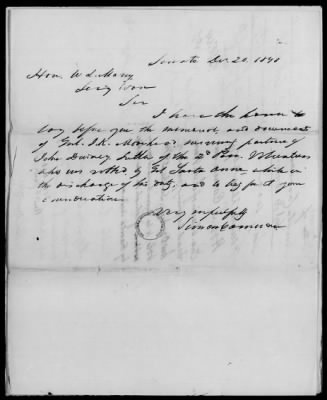 Senate Dec 20. 1848
Hon. W L Marcy
Secy War
Sir
I have the honor to
lay before you the memorial and documents
of Geo. J. K. surviving partner of
John Sutler of the 2d Pen. Volunteers
who was robbed by Gel Santa Anna, while in
the discharge of his duty, and to beg for it your
consideration
Very respectfully
Simon Cameron